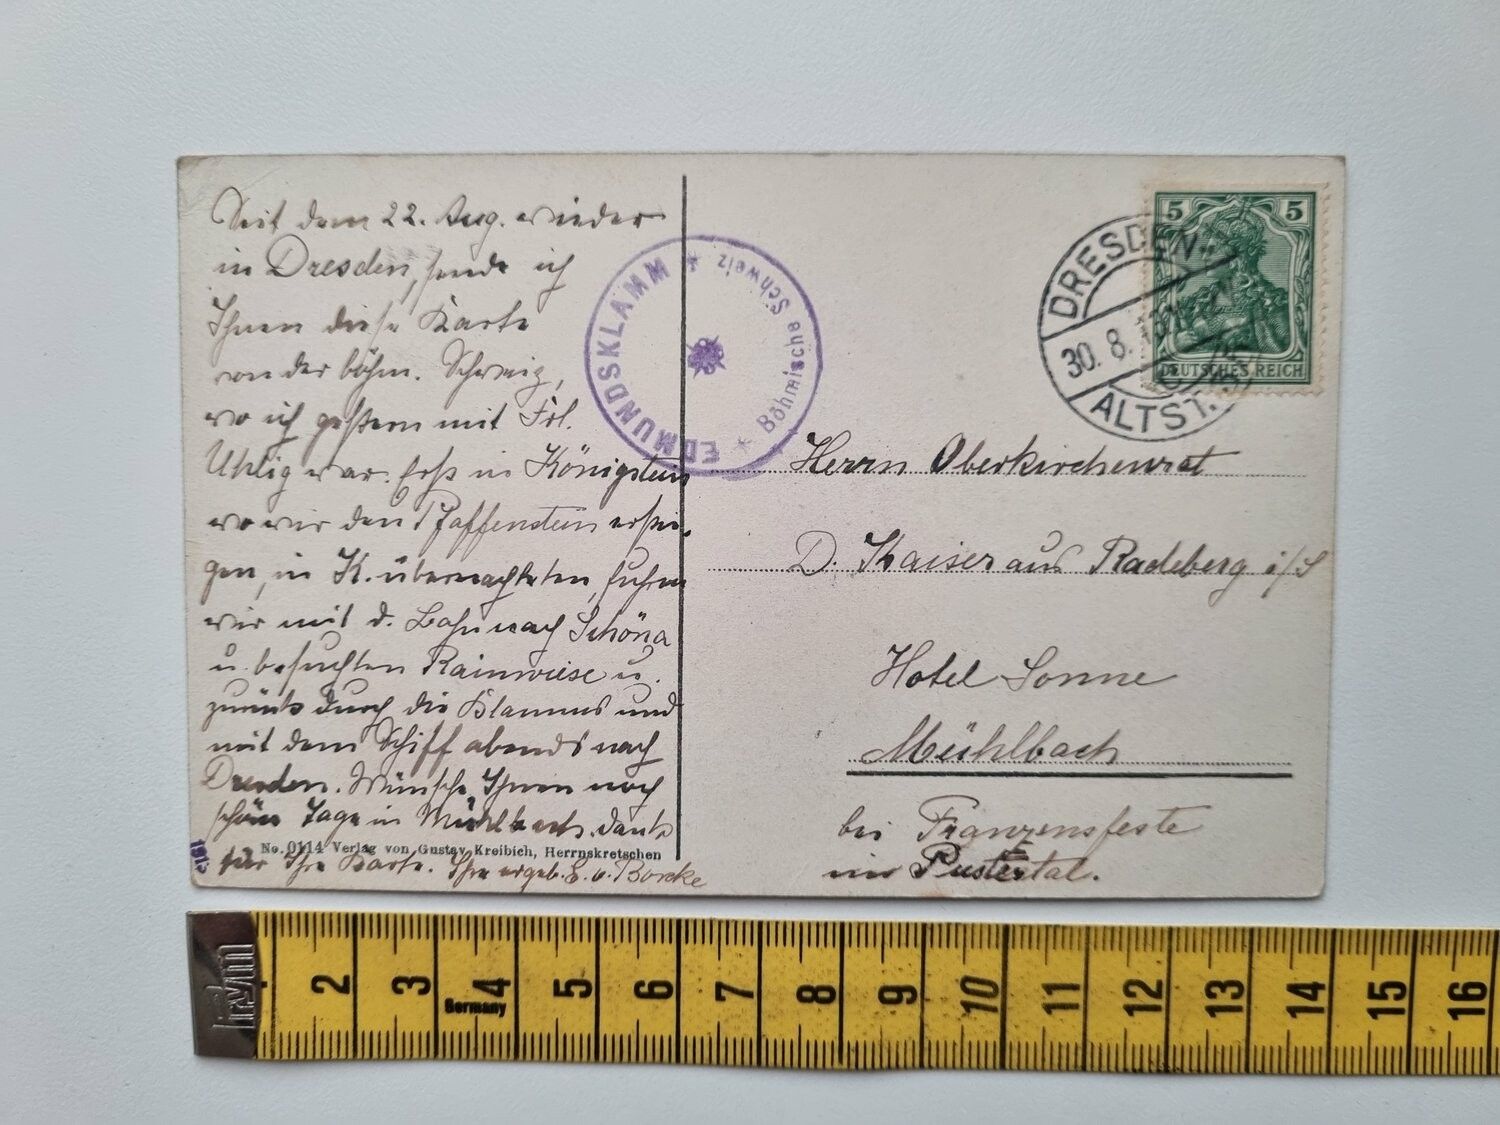 Seit dem 22. Aug. wieder
in Dresden, sende ich
Ihnen diese Karte
von der böhm. Schweiz,
wo ich gestern mit Frl.
Uhlig war. Erst in Königstein
wo wir den Pfaffenstein erstie-
gen, in K. übernachteten, fuhren
wir mit d. Bahn nach Schöna
u. besuchten Rainwiese u.
zurück durch die Klamms und
mit dem Schiff abends nach
Dresden. Wünsche Ihnen noch
schöne Tage in Mühlbach. Danke
für Ihre Karte. Ihre ergeb. E. v. Borcke
No. 0114 Verlag von Gustav Kreibich, Herrnskretschen
EDMUNDSKLAMM
* Böhmische Schweiz *
5 5
DEUTSCHES REICH
DRESDEN-
30. 8.
ALTST.
Herrn Oberkirchenrat
D. Kaiser aus Radeberg i/S
Hotel Sonne
Mühlbach
bei Franzensfeste
im Pustertal.
Prym
2 3 4 5 6 7 8 9 10 11 12 13 14 15 16
Germany